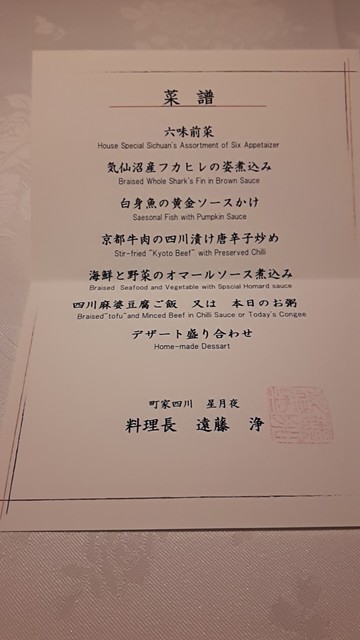 菜譜
六味前菜
House Special Sichuan's Assortment of Six Appetaizer
気仙沼産フカヒレの姿煮込み
Braised Whole Shark's Fin in Brown Sauce
白身魚の黄金ソースかけ
Saesonal Fish with Pumpkin Sauce
京都牛肉の四川漬け唐辛子炒め
Stir-fried "Kyoto Beef" with Preserved Chilli
海鮮と野菜のオマールソース煮込み
Braised Seafood and Vegetable with Spscial Homard sauce
四川麻婆豆腐ご飯 又は 本日のお粥
Braised"tofu"and Minced Beef in Chilli Sauce or Today's Congee
デザート盛り合わせ
Home-made Dessart
町家四川 星月夜
料理長 遠藤 浄